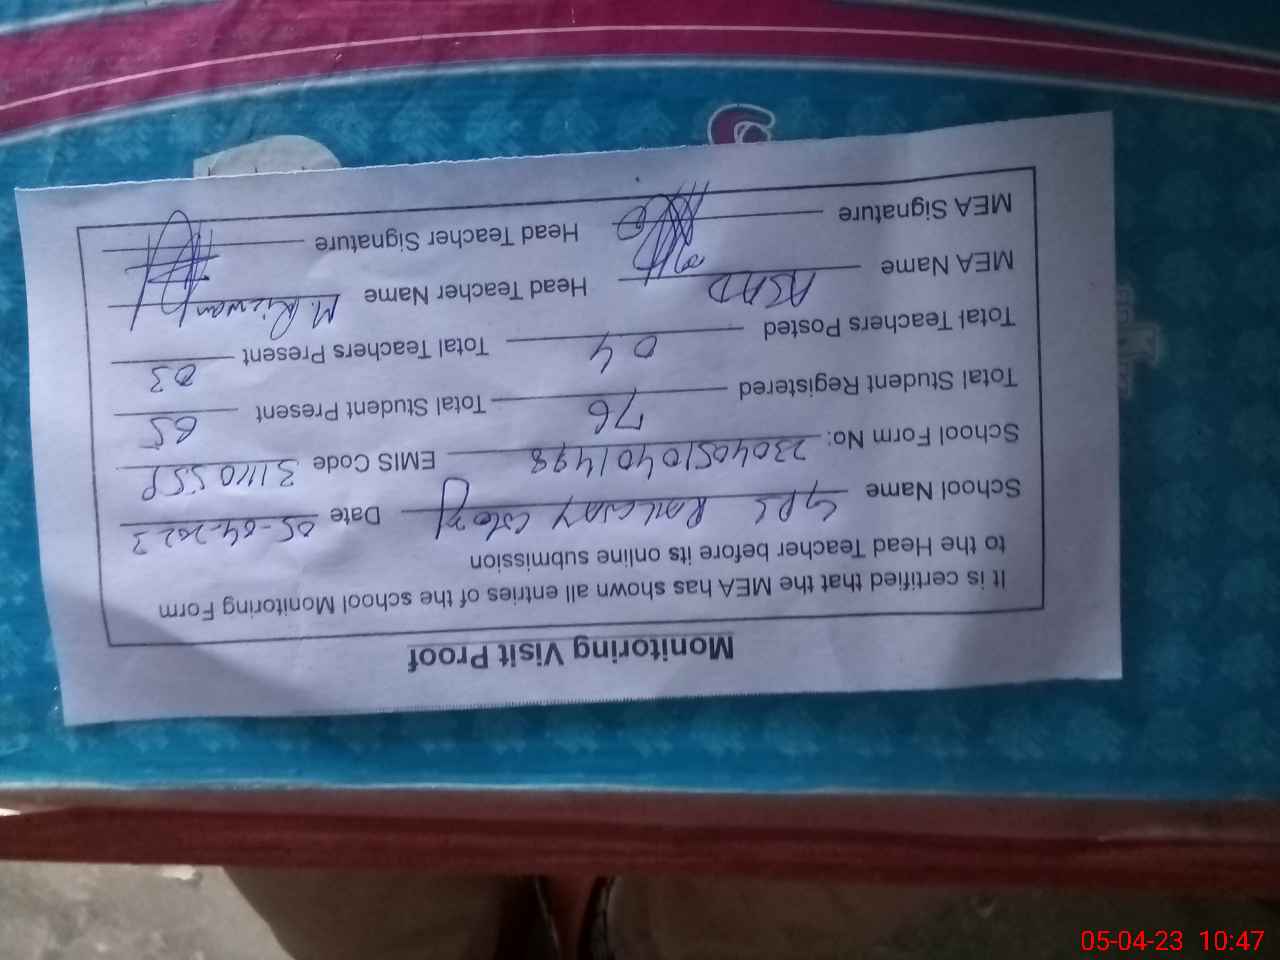 Monitoring Visit Proof
It is certified that the MEA has shown all entries of the school Monitoring Form
to the Head Teacher before its online submission
School Name GPS Railway Colony Date 05-04-2023
School Form No: 23040510401498 EMIS Code
Total Student Registered 76 Total Student Present 65
Total Teachers Posted 04 Total Teachers Present 03
MEA Name ASAD Head Teacher Name M. Rizwan
MEA Signature Head Teacher Signature
05-04-23 10:47